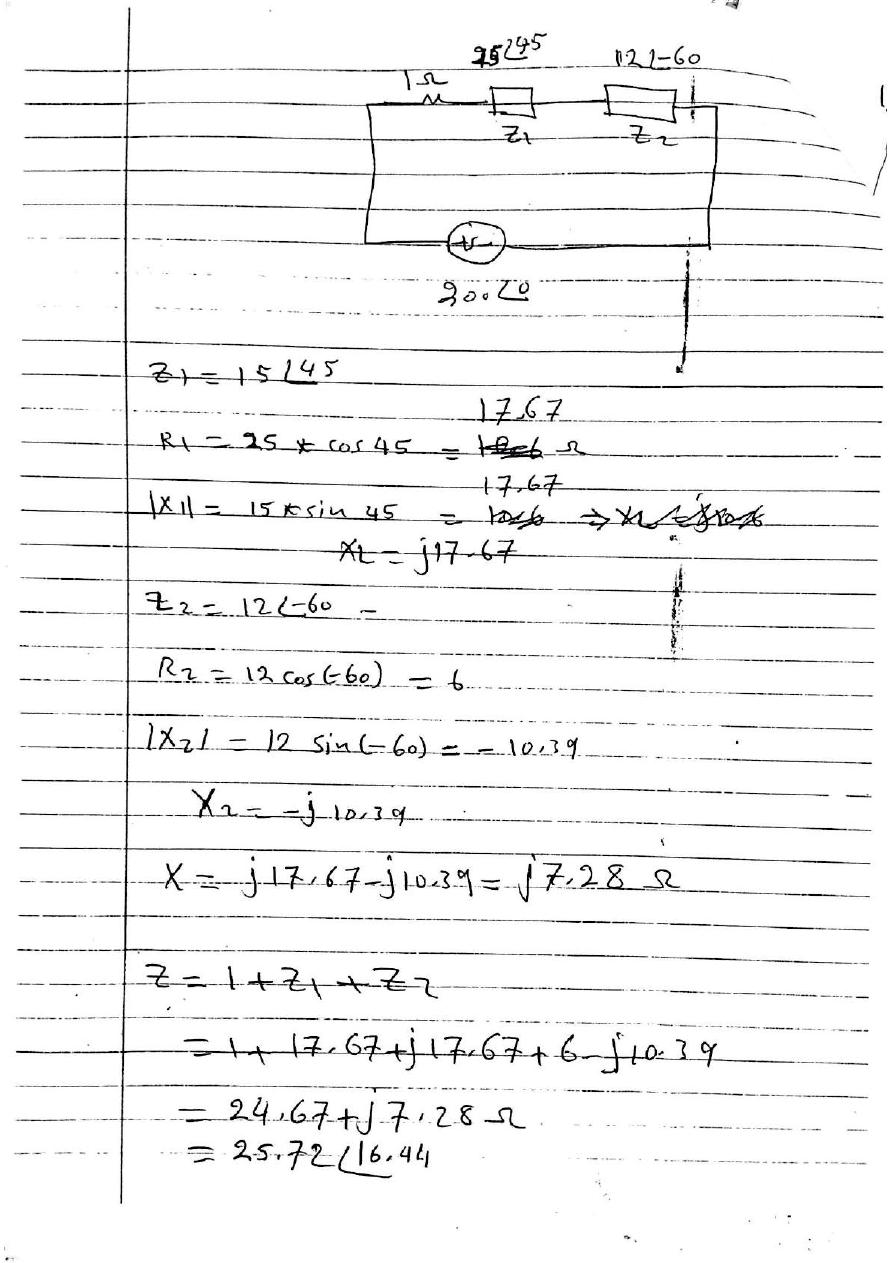 25∠45 12∠-60
1Ω
Z1 Z2
200∠0
Z1 = 15∠45
17.67
R1 = 25 * cos 45 = Ω
17.67
|X1| = 15 * sin 45 = ⇒
XL = j17.67
Z2 = 12∠-60 -
R2 = 12 cos(-60) = 6
|X2| = 12 sin(-60) = -10.39
X2 = -j 10.39
X = j17.67-j10.39 = j7.28 Ω
Z = 1+Z1+Z2
= 1+ 17.67+j17.67+6-j10.39
= 24.67+j7.28 Ω
= 25.72∠16.44